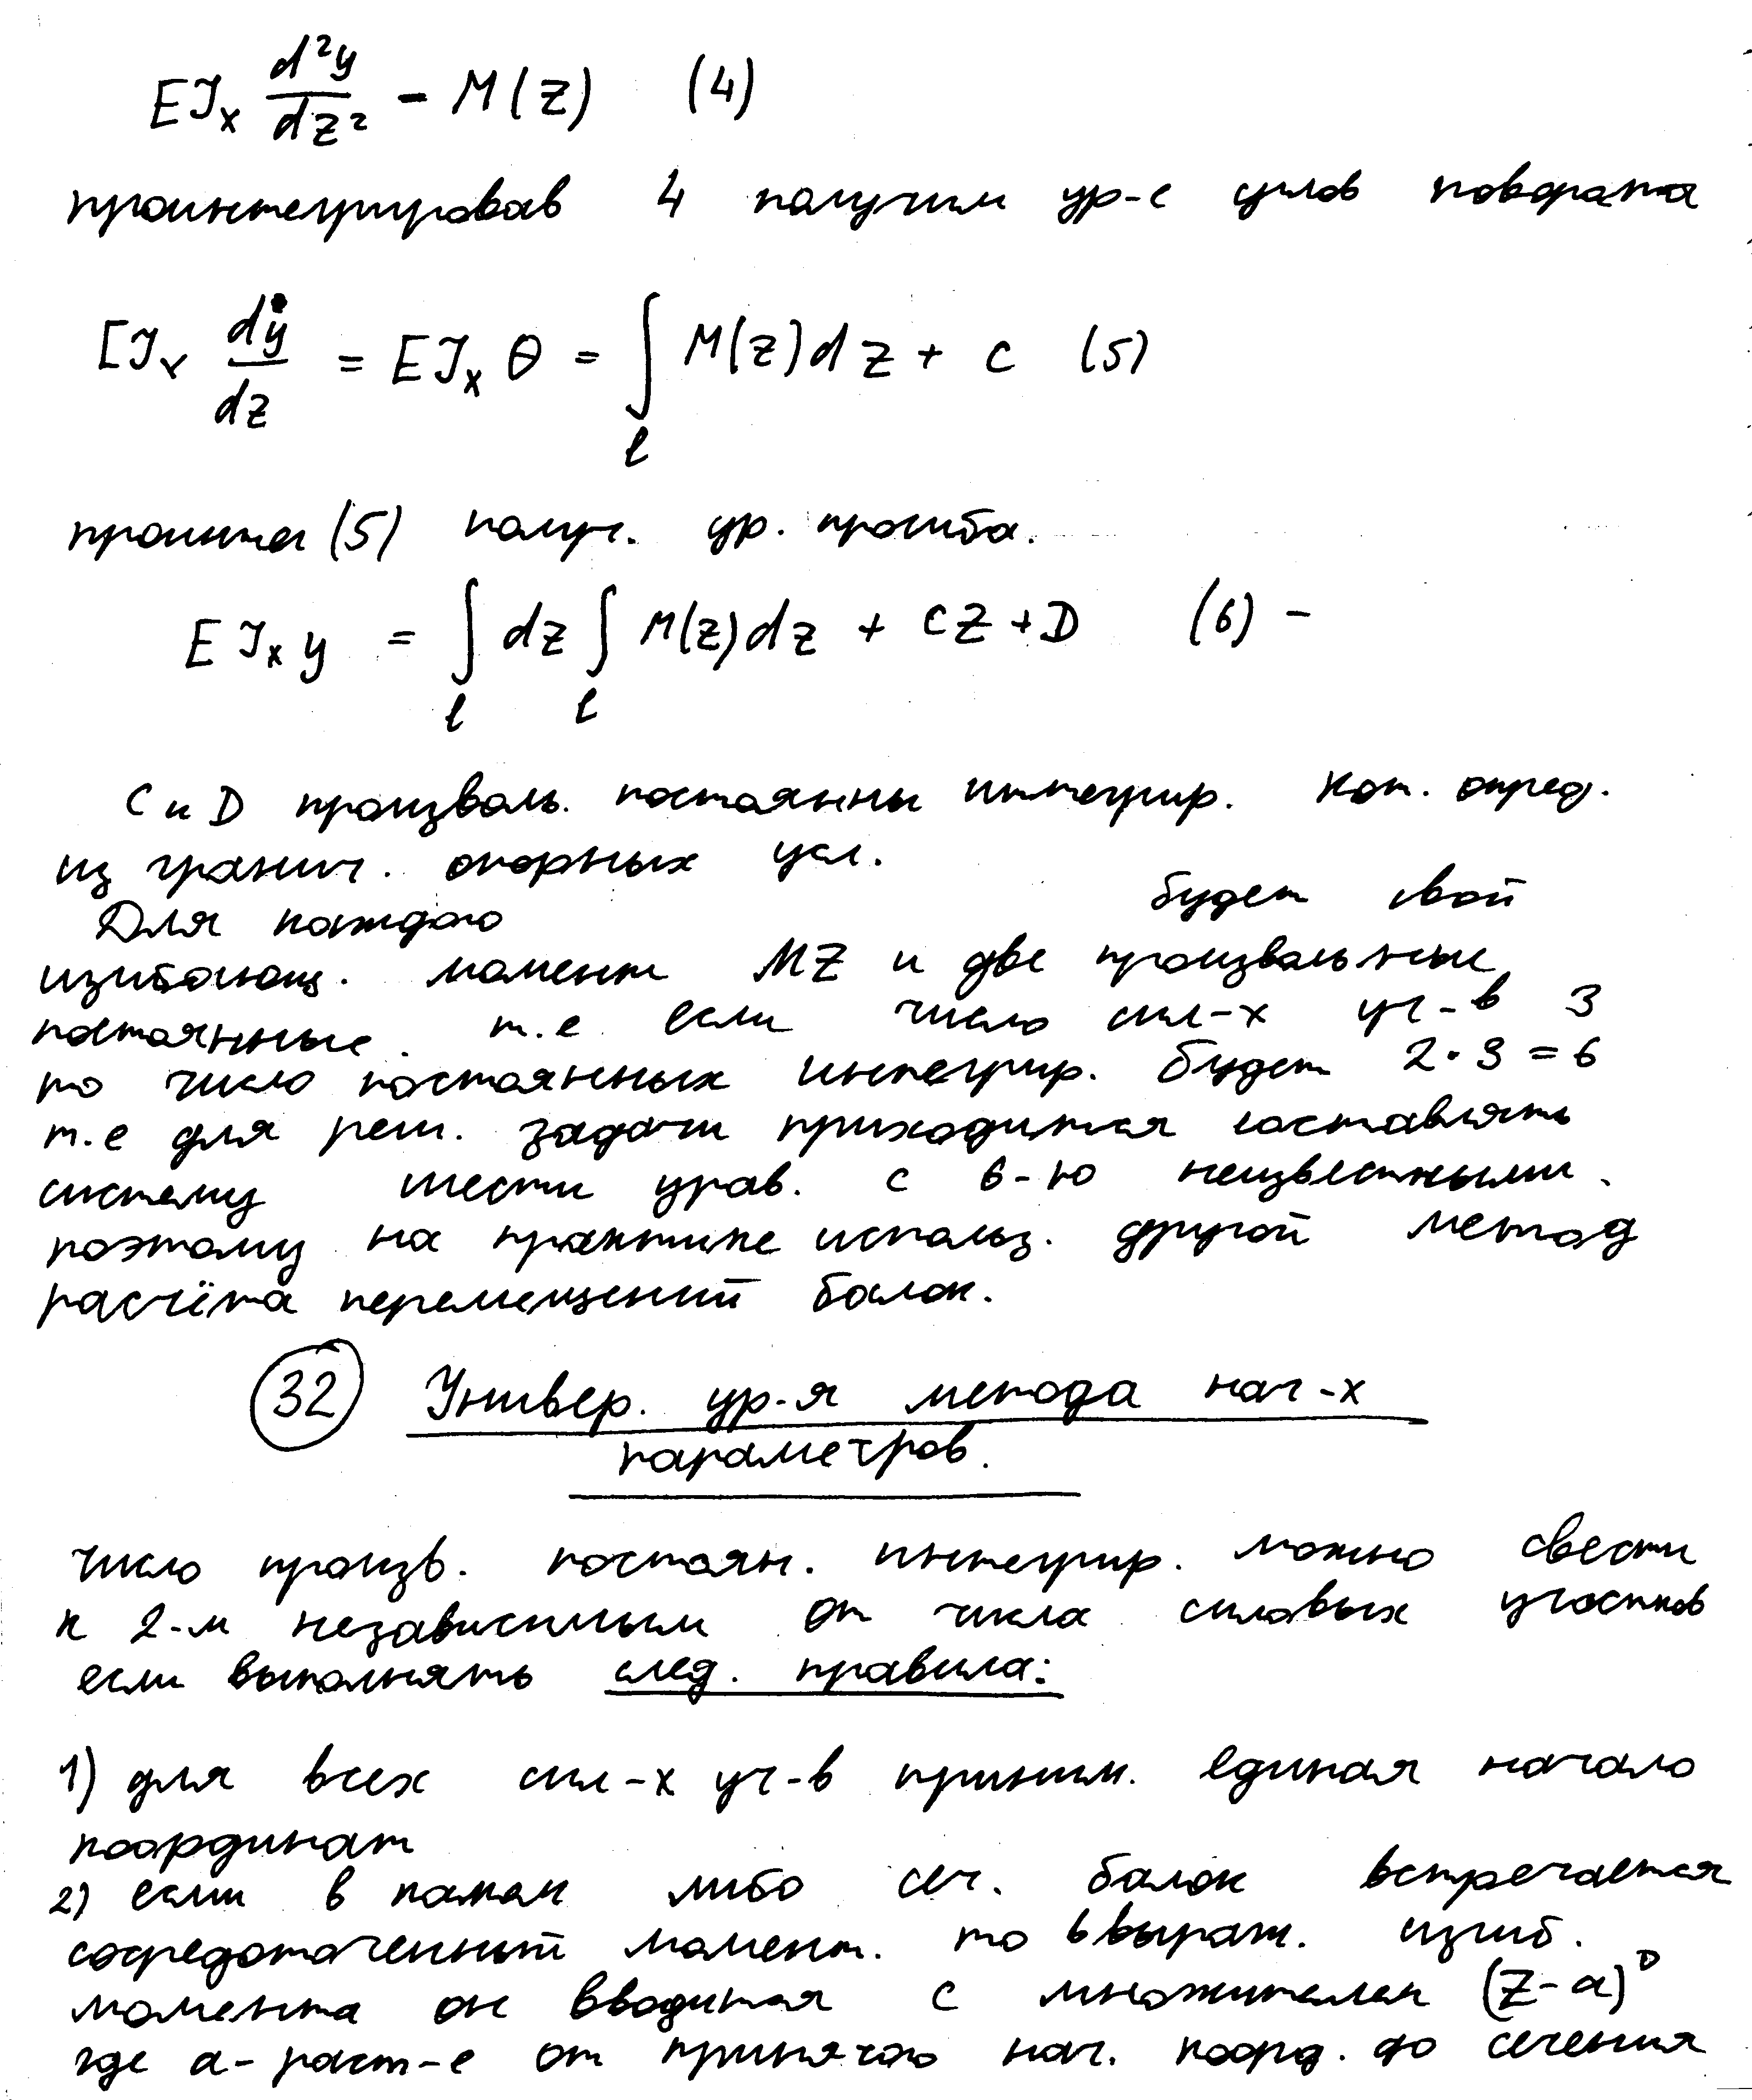 EJx d²y/dz² - M(z) (4)
проинтегрировав 4 получим ур-е углов поворота
EJx dy/dz = EJx θ = ∫l M(z)dz + c (5)
проинтег (5) получ. ур. прогиба.
EJx y = ∫l dz ∫l M(z)dz + cz + D (6) -
C и D произволь. постоянны интегрир. кот. опред.
из гранич. опорных усл.
Для каждого будет свой
изгибающ. момент MZ и две произвольные
постоянные. т.е если число сил-х уч-в 3
то число постоянных интегрир. будет 2·3=6
т.е для реш. задачи приходится составлять
систему шести урав. с 6-ю неизвестными.
поэтому на практике использ. другой метод
расчёта перемещений балок.
32 Универ. ур-я метода нач-х
параметров.
число произв. постоян. интегрир. можно свести
к 2-м независимым от числа силовых участков
если выполнять след. правила:
1) для всех сил-х уч-в приним. единая начало
координат
2) если в каком либо сеч. балок встречается
сосредоточенный момент. то в выраж. изгиб.
момента он вводится с множителем (z-a)⁰
где a - раст-е от принятого нач. коорд. до сечения